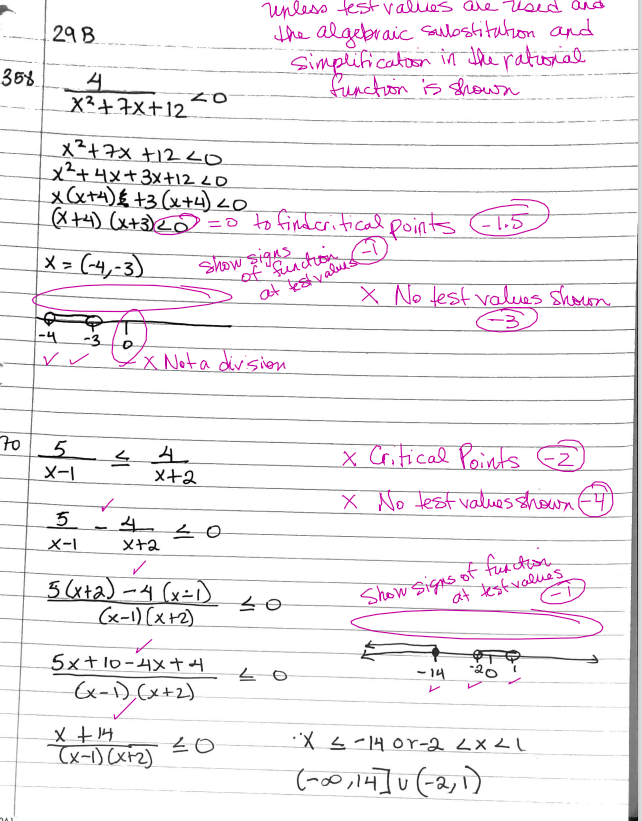 unless test values are used and
the algebraic substitution and
simplification in the rational
function is shown
29B
358
4
x²+7x+12 <0
x²+7x+12<0
x²+4x+3x+12<0
x(x+4) +3(x+4)<0
(x+4)(x+3)<0 =0 to find critical points -1.5
x=(-4,-3)
show signs
of function
at test values -1
x No test values shown
-3
-4 -3 0
✓ ✓ x Not a division
70
5/(x-1) ≤ 4/(x+2)
x Critical Points -2
x No test values shown -4
5/(x-1) - 4/(x+2) ≤ 0
5(x+2)-4(x-1)
(x-1)(x+2) ≤0
show signs of function
at test values -1
5x+10-4x+4
(x-1)(x+2) ≤ 0
-14 -2 0 1
x+14
(x-1)(x+2) ≤0
∵x ≤ -14 or -2 <x<1
(-∞,14]∪(-2,1)